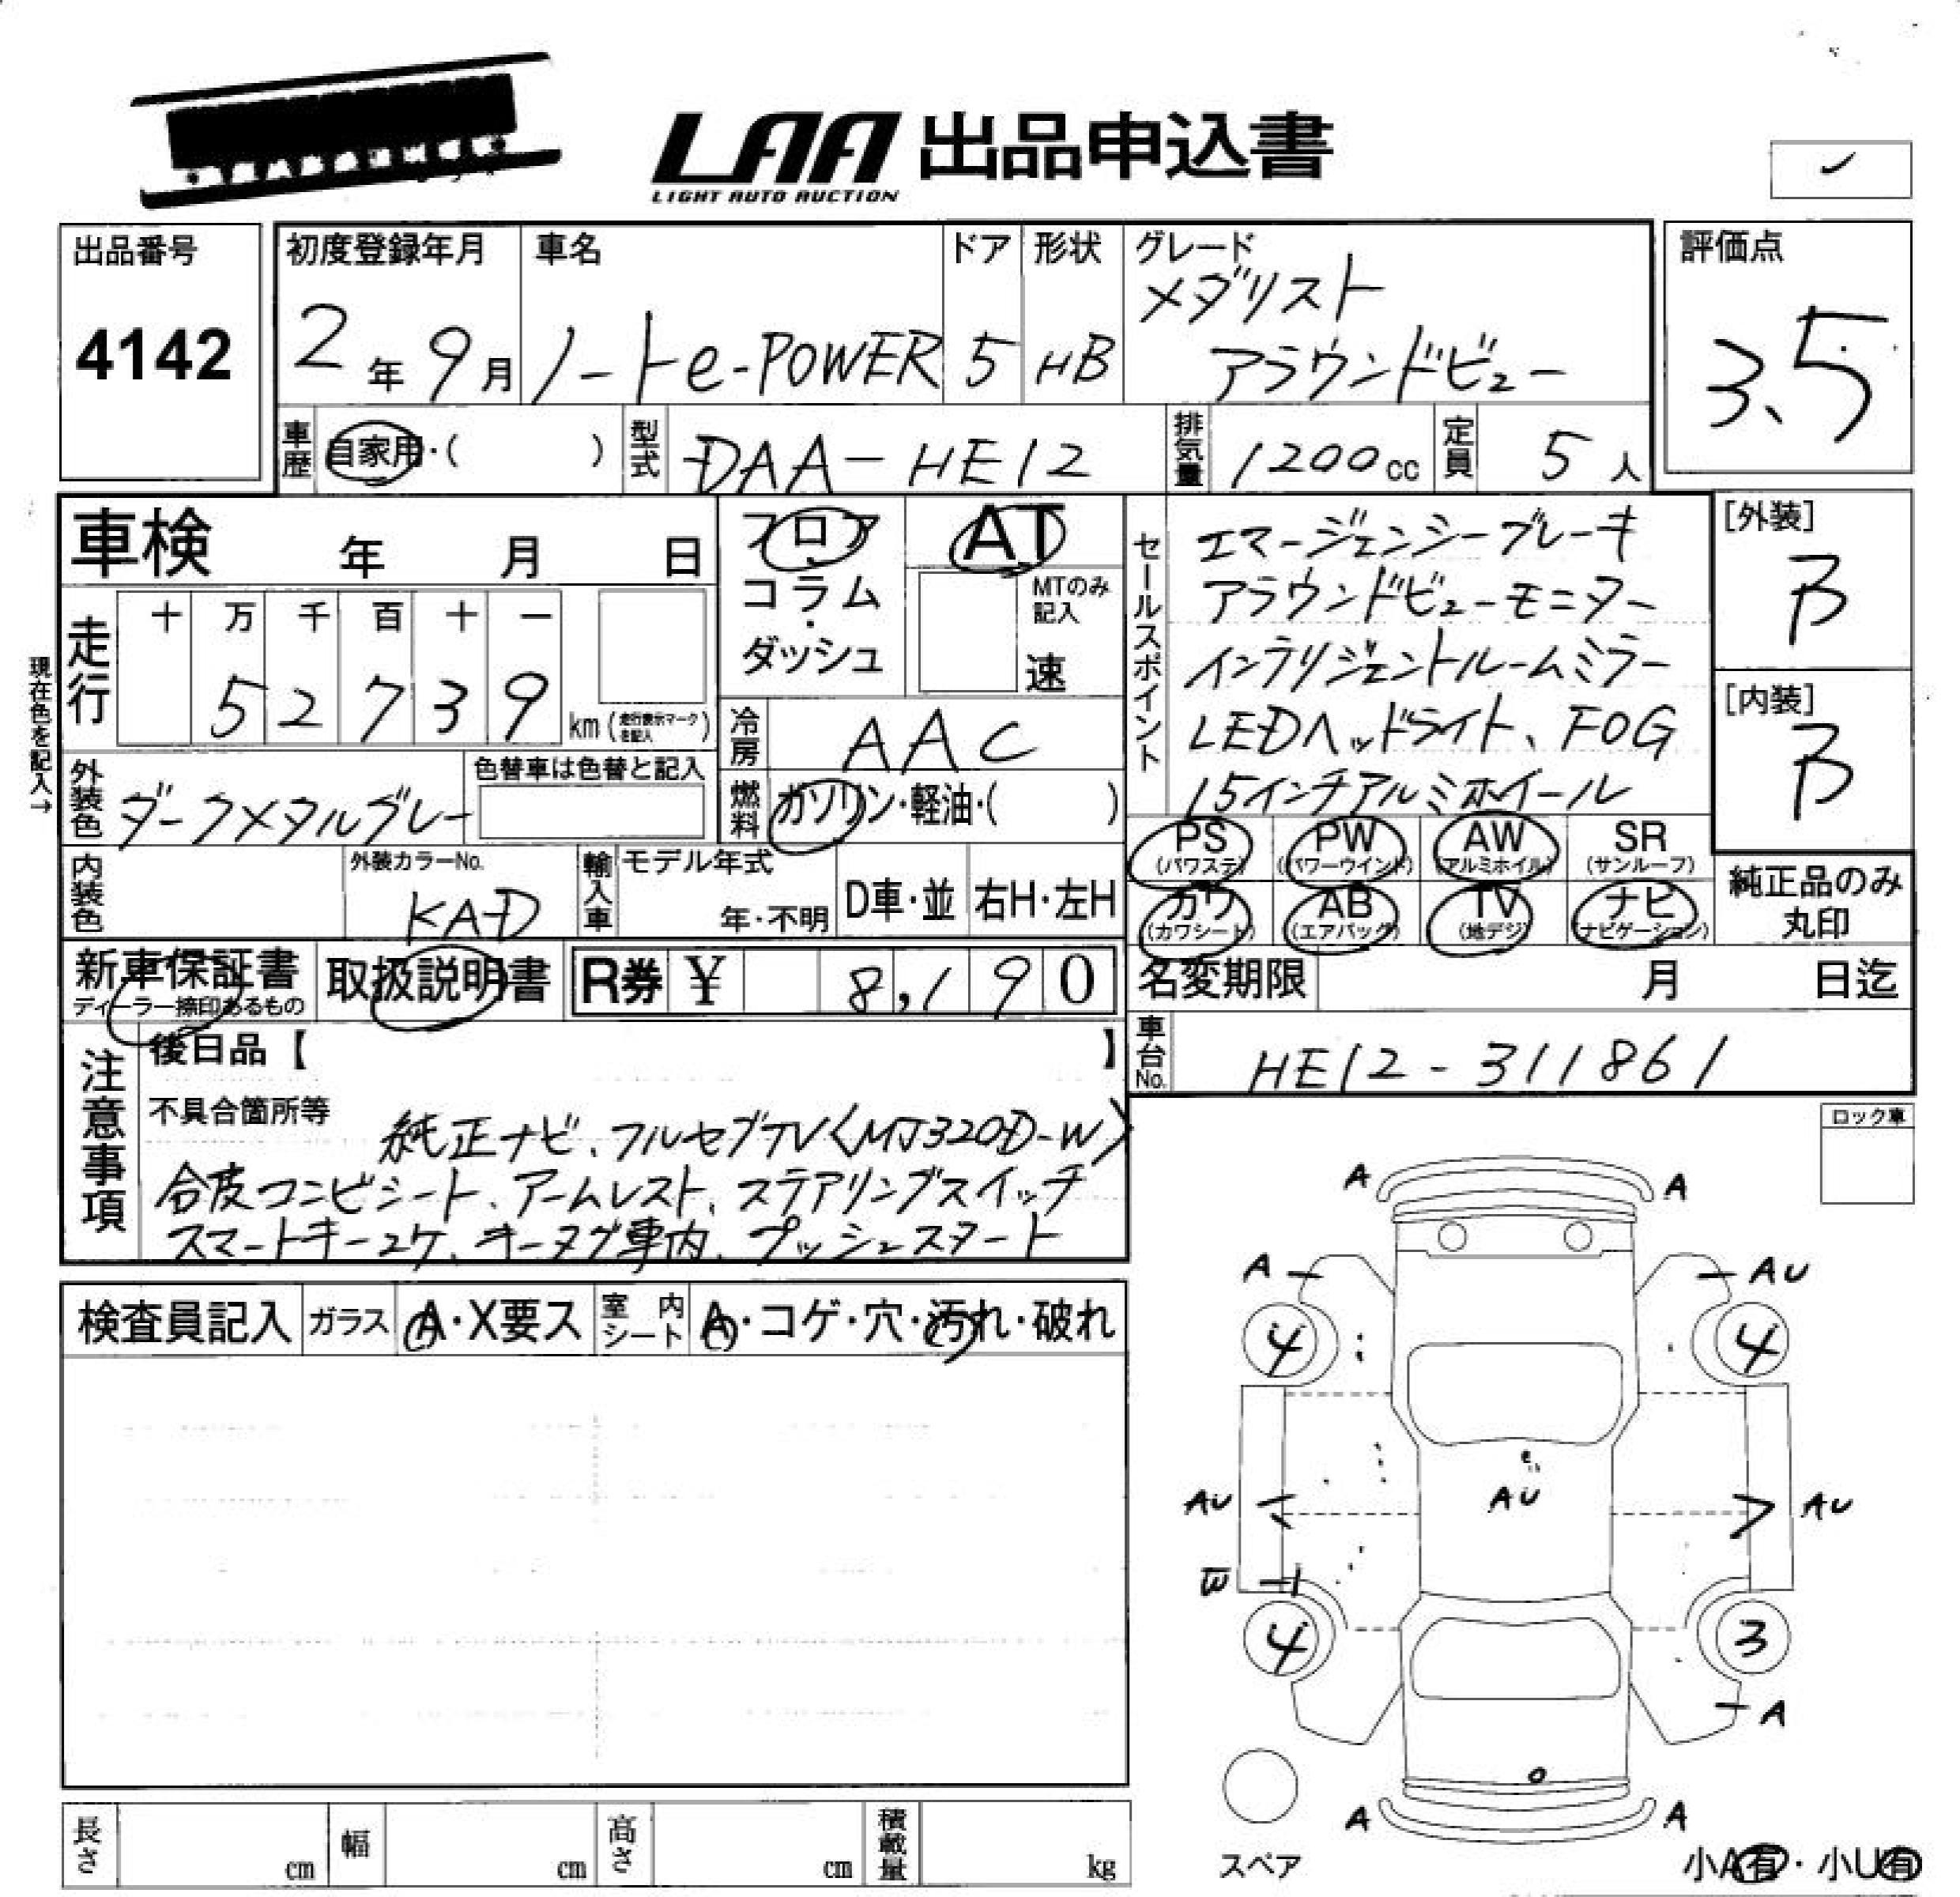 LAA 出品申込書
LIGHT AUTO AUCTION
出品番号
4142
初度登録年月
2年9月
車名
ノートe-POWER
ドア
5
形状
HB
グレード
メダリスト
アラウンドビュー
評価点
3.5
車歴
自家用・( )
型式
DAA-HE12
排気量
1200cc
定員
5人
車検 年 月 日
フロア・コラム・ダッシュ
AT
MTのみ記入
速
セールスポイント
エマージェンシーブレーキ
アラウンドビューモニター
インテリジェントルームミラー
LEDヘッドライト、FOG
15インチアルミホイール
[外装]
B
[内装]
B
現在色を記入→
走行
十 万 千 百 十 一
5 2 7 3 9
km (走行表示マークを記入)
冷房
AAC
外装色
ダークメタルグレー
色替車は色替と記入
燃料
ガソリン・軽油・( )
PS (パワステ)
PW (パワーウインド)
AW (アルミホイル)
SR (サンルーフ)
カワ (カワシート)
AB (エアバック)
TV (地デジ)
ナビ (ナビゲーション)
純正品のみ丸印
内装色
外装カラーNo.
KAD
輸入車
モデル年式
年・不明
D車・並
右H・左H
新車保証書
ディーラー捺印あるもの
取扱説明書
R券 ¥ 8,190
名変期限 月 日迄
車台No.
HE12-311861
注意事項
後日品【 】
不具合箇所等
純正ナビ、フルセグTV〈MJ320D-W〉
合皮コンビシート、アームレスト、ステアリングスイッチ
スマートキー2ケ、キータグ車内、プッシュスタート
ロック車
検査員記入
ガラス
A・X要ス
室内シート
A・コゲ・穴・汚れ・破れ
A A
A AU
4 4
AU AU AU
W
4 3
A
A A
スペア
小A有・小U有
長さ cm
幅 cm
高さ cm
積載量 kg